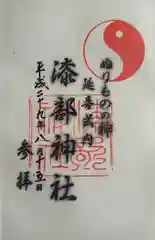 ぬりものの神
延喜式内
漆部神社
平成二十九年八月十五日
参拝